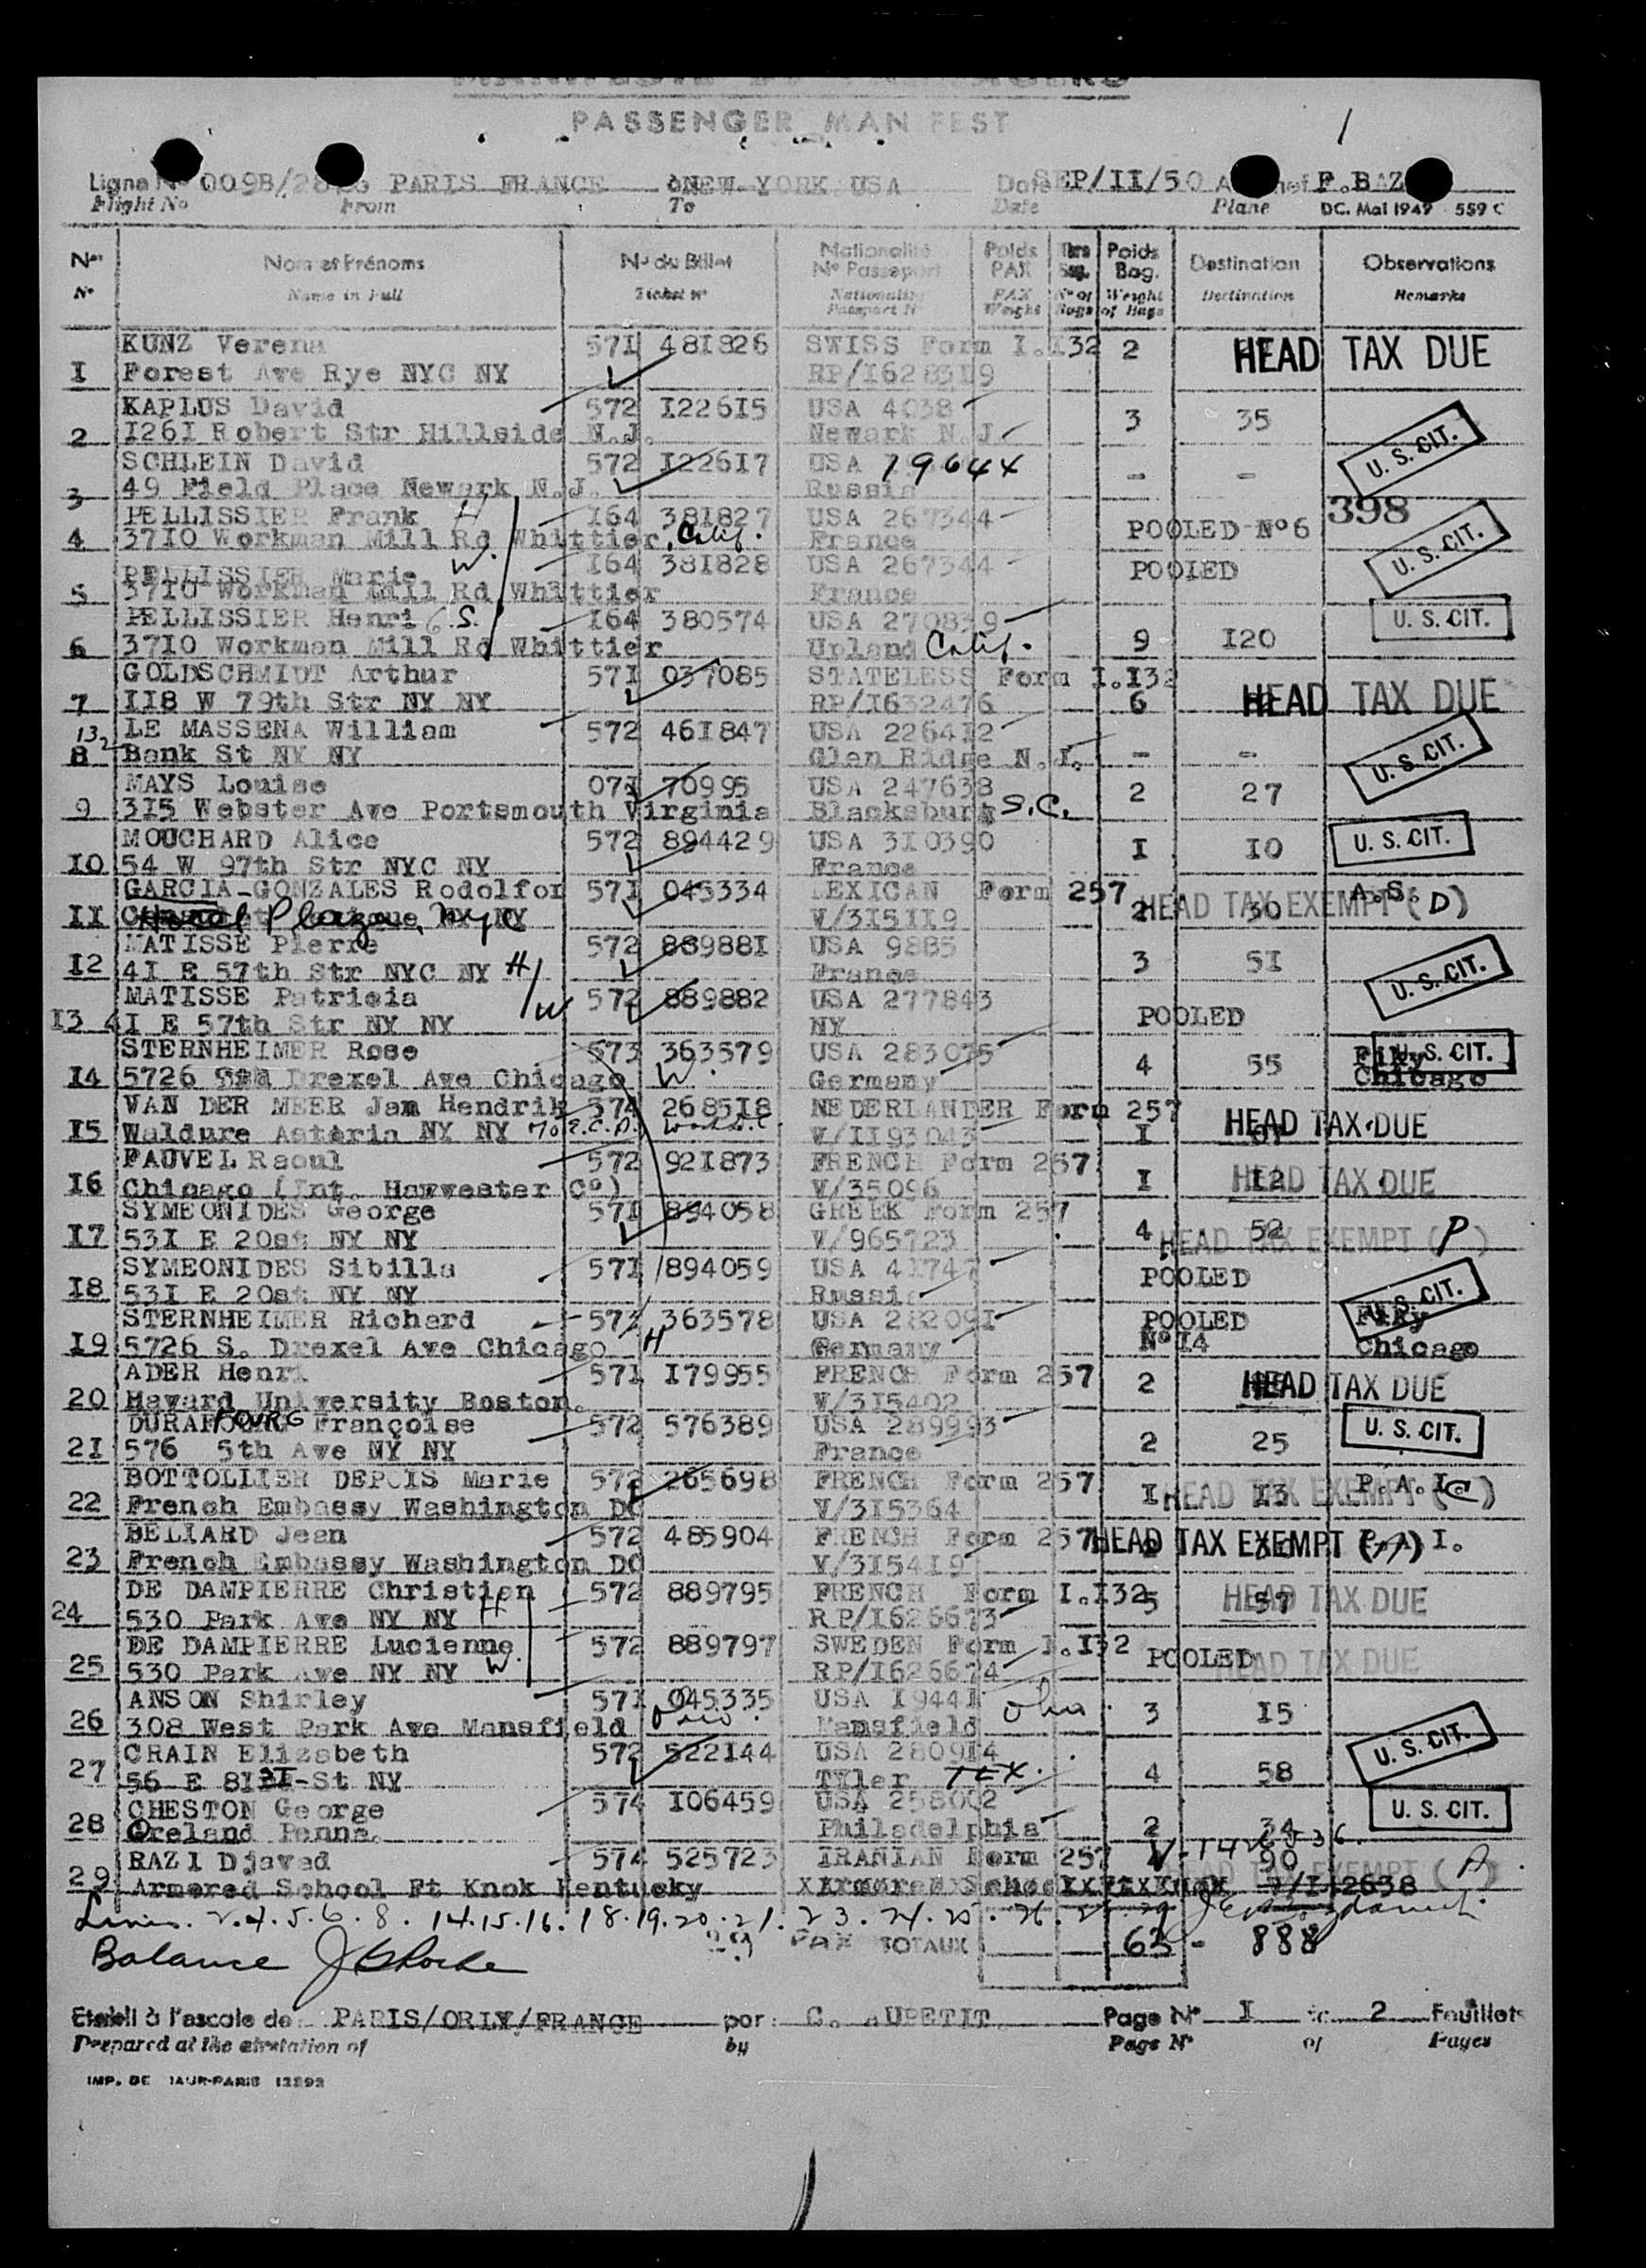 PASSENGER MAN FEST
1
Ligne No 009B/28 PARIS FRANCE à NEW YORK USA Date SEP/II/50 F.BAZ
Flight No From To Date Plane DC. Mai 1949 559 C
Nos Nom et Prénoms No du Billet Nationalité No Passeport Poids PAX Nbre Bag. Poids Bag. Destination Observations
No Name in Full Ticket No Nationality Passport No PAX Weight No of Bags Weight of Bags Destination Remarks
KUNZ Verena 571 481826 SWISS Form I.I32 2 HEAD TAX DUE
I Forest Ave Rye NYC NY RP/I628319
KAPLUS David 572 I226I5 USA 4038 3 35
2 I26I Robert Str Hillside N.J. Newark N.J U.S. CIT.
SCHLEIN David 572 I226I7 USA 19644 - -
3 49 Field Place Newark N.J. Russia
PELLISSIER Frank H I64 38I827 USA 267344 POOLED No 6 398
4 37I0 Workman Mill Rd Whittier, Calif. France U.S. CIT.
PELLISSIER Marie W. I64 38I828 USA 267344 POOLED
5 37I0 Workman Mill Rd Whittier France
PELLISSIER Henri S. I64 380574 USA 270839 U.S. CIT.
6 37I0 Workman Mill Rd Whittier Upland Calif. 9 I20
GOLDSCHMIDT Arthur 57I 037085 STATELESS Form I.I32
7 II8 W 79th Str NY NY RP/I632476 6 HEAD TAX DUE
LE MASSENA William 572 46I847 USA 2264I2
132 8 Bank St NY NY Glen Ridge N.J. - - U.S. CIT.
MAYS Louise 07I 70995 USA 247638 2 27
9 3I5 Webster Ave Portsmouth Virginia Blacksburg S.C.
MOUCHARD Alice 572 894429 USA 3I0390 I I0 U.S. CIT.
I0 54 W 97th Str NYC NY France
GARCIA-GONZALES Rodolfor 57I 045334 MEXICAN Form 257 2 30 HEAD TAX EXEMPT (D) A.S.
II Hotel Plaza, NYC V/3I5II9
MATISSE Pierre 572 88988I USA 9885 3 5I
I2 4I E 57th Str NYC NY H France U.S. CIT.
MATISSE Patricia W 572 889882 USA 277843 POOLED
I3 4I E 57th Str NY NY NY
STERNHEIMER Rose 573 363579 USA 283075 4 55 U.S. CIT.
I4 5726 Drexel Ave Chicago W. Germany Chicago
VAN DER MEER Jam Hendrik 574 2685I8 NEDERLANDER Form 257 HEAD TAX DUE
I5 Waldure Astoria NY NY V/II93043 I
FAUVEL Raoul 572 92I873 FRENCH Form 257 I I2 HEAD TAX DUE
I6 Chicago (Int. Harwester Co) V/35096
SYMEONIDES George 57I 894058 GREEK Form 257 4 52
I7 53I E 20st NY NY V/965723 HEAD TAX EXEMPT (P)
SYMEONIDES Sibilla 57I 894059 USA 4I747 POOLED
I8 53I E 20st NY NY Russia U.S. CIT.
STERNHEIMER Richard 573 363578 USA 28209I POOLED
I9 5726 S. Drexel Ave Chicago H Germany No I4 Chicago
ADER Henri 57I I79955 FRENCH Form 257 2 HEAD TAX DUE
20 Havard University Boston. V/3I5402
DURAFFOURG Françoise 572 576389 USA 289993 U.S. CIT.
2I 576 5th Ave NY NY France 2 25
BOTTOLLIER DEPOIS Marie 572 265698 FRENCH Form 257 I I3 HEAD TAX EXEMPT (C) P.A.I.
22 French Embassy Washington DC V/3I5364
BELIARD Jean 572 485904 FRENCH Form 257 HEAD TAX EXEMPT I.
23 French Embassy Washington DC V/3I54I9
DE DAMPIERRE Christien 572 889795 FRENCH Form I.I32 5 57 HEAD TAX DUE
24 530 Park Ave NY NY H RP/I626673
DE DAMPIERRE Lucienne 572 889797 SWEDEN Form I.I32 POOLED HEAD TAX DUE
25 530 Park Ave NY NY W. RP/I626674
ANSON Shirley 57I 045335 USA I944I Ohio 3 I5
26 308 West Park Ave Mansfield Ohio. Mansfield U.S. CIT.
CRAIN Elizabeth 572 522I44 USA 2809I4 4 58
27 56 E 8I ST-St NY Tyler TEX.
CHESTON George 574 I06459 USA 258002 U.S. CIT.
28 Oreland Penna. Philadelphia 2 34
RAZI Djaved 574 525723 IRANIAN Form 257 90 HEAD TAX EXEMPT (A)
29 Armored School Ft Knok Kentucky V/I42638
Lines. 2.4.5.6.8. 14.15.16.18.19.20.21.23.24.25.26.28.29
29 PAX TOTAUX 63 - 888
Balance
Etabli à l'escale de PARIS/ORLY/FRANCE par C. AUPETIT Page No I de 2 Feuillets
Prepared at the airstation of by Page No of Pages
IMP. DE PARIS